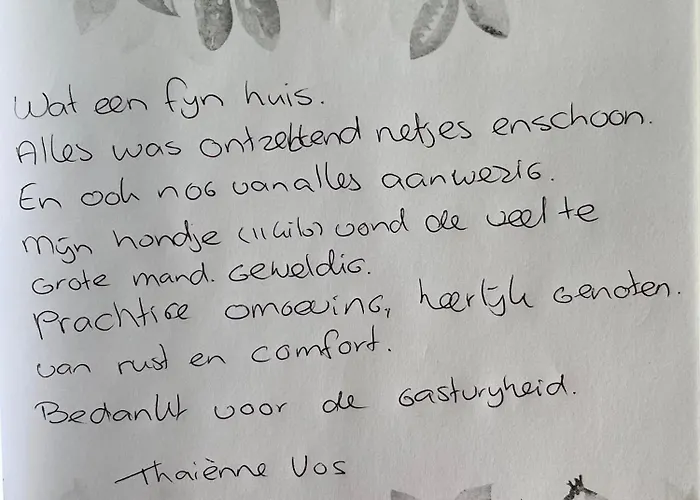 Wat een fijn huis.
Alles was ontzettend netjes enschoon.
En ook nog vanalles aanwezig.
Mijn hondje (11 kilo) vond de veel te
grote mand. Geweldig.
Prachtige omgeving, heerlijk genoten.
van rust en comfort.
Bedankt voor de gastvrijheid.
Thaiènne Vos